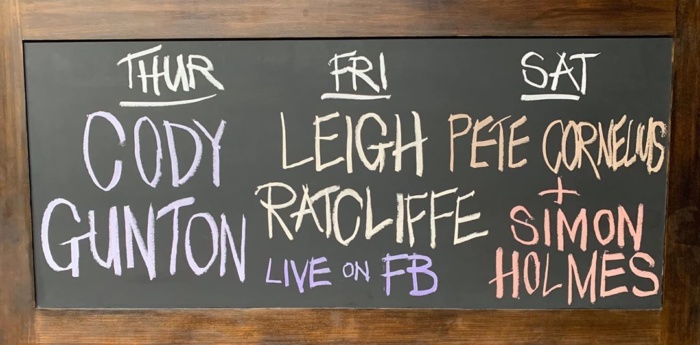 THUR
CODY
GUNTON
FRI
LEIGH
RATCLIFFE
LIVE ON FB
SAT
PETE CORNELIUS
+
SIMON
HOLMES